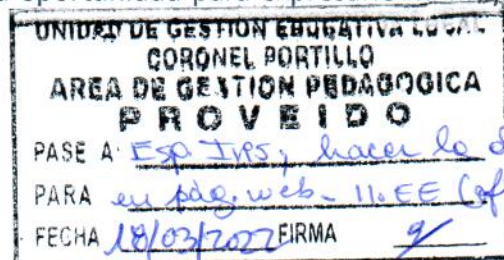 oportunidad para
UNIDAD DE GESTION EDUCATIVA LOCAL
CORONEL PORTILLO
AREA DE GESTION PEDAGOGICA
PROVEIDO
PASE A Esp. IVPS, hacer lo d
PARA en pág. web - II.EE (of
FECHA 18/03/2022 FIRMA